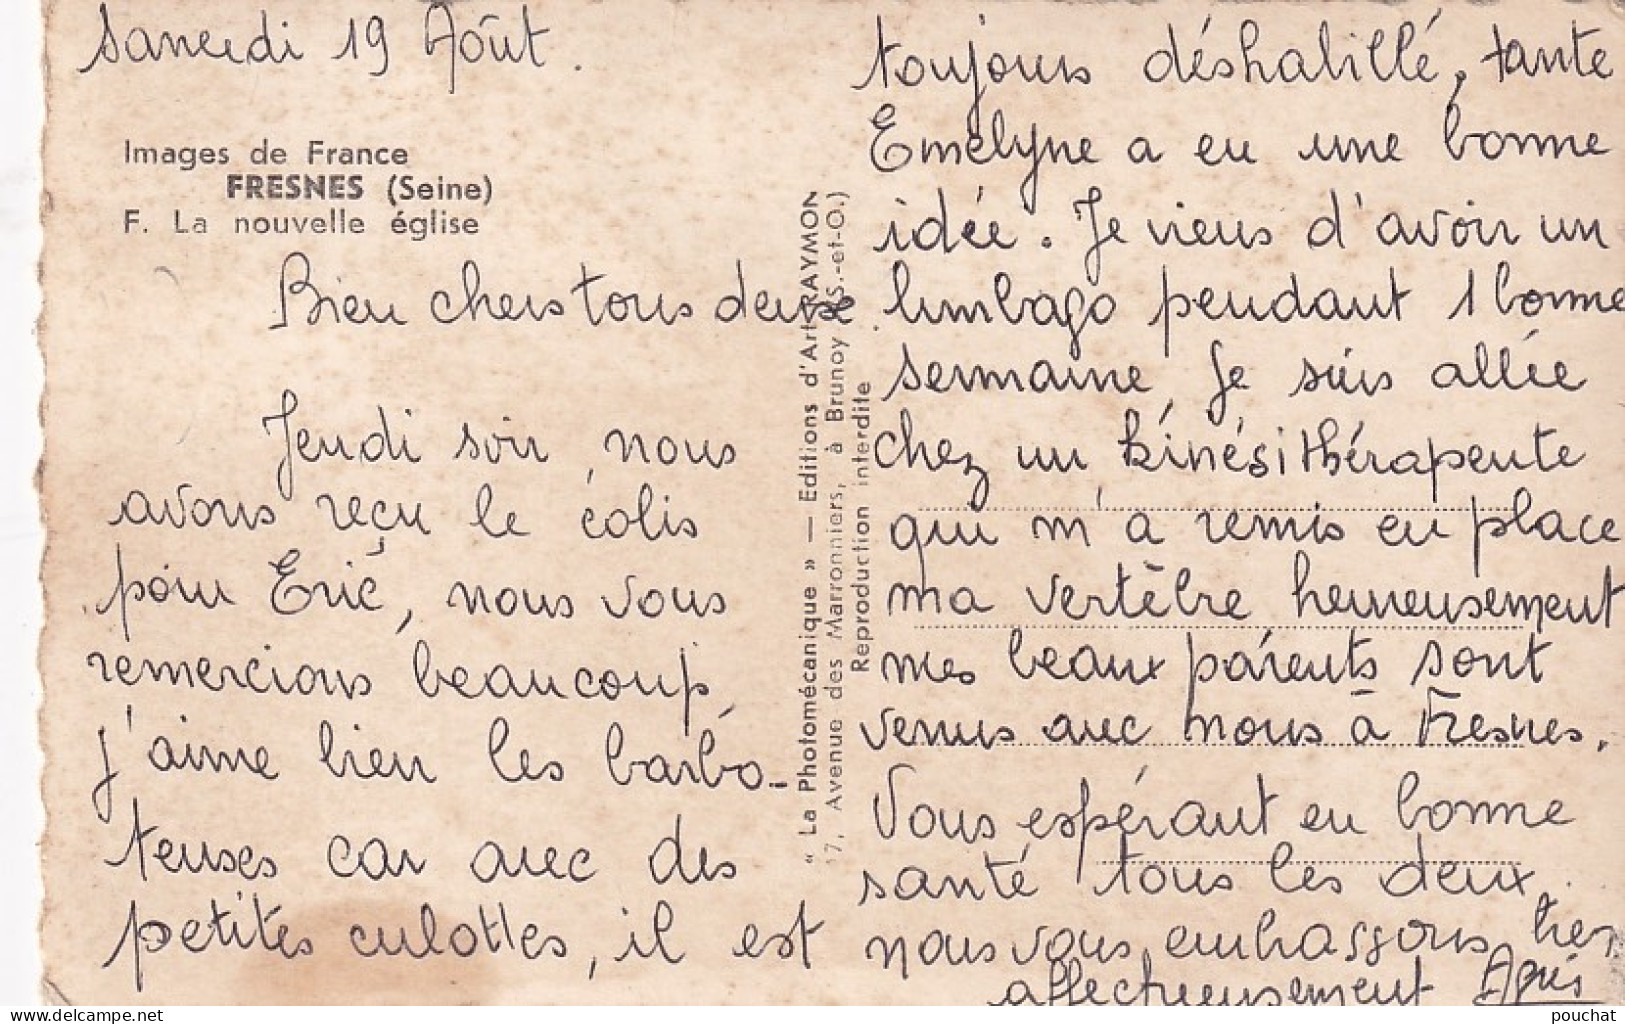 Samedi 19 Août.
Images de France
FRESNES (Seine)
F. La nouvelle église
Bien chers tous deux
Jeudi soir, nous
avons reçu le colis
pour Eric, nous vous
remercions beaucoup,
j'aime bien les barbo-
teuses car avec des
petites culottes, il est
« La Photomécanique » — Editions d'Art RAYMON
17, Avenue des Marronniers, à Brunoy (S.-et-O.)
Reproduction interdite
toujours déshabillé, tante
Emelyne a eu une bonne
idée. Je viens d'avoir un
lumbago pendant 1 bonne
semaine, je suis allée
chez un kinésithérapeute
qui m'a remis en place
ma vertèbre heureusement
mes beaux parents sont
venus avec nous à Fresnes.
Vous espérant en bonne
santé tous les deux
nous vous embrassons très
affectueusement Agnès
pouchat